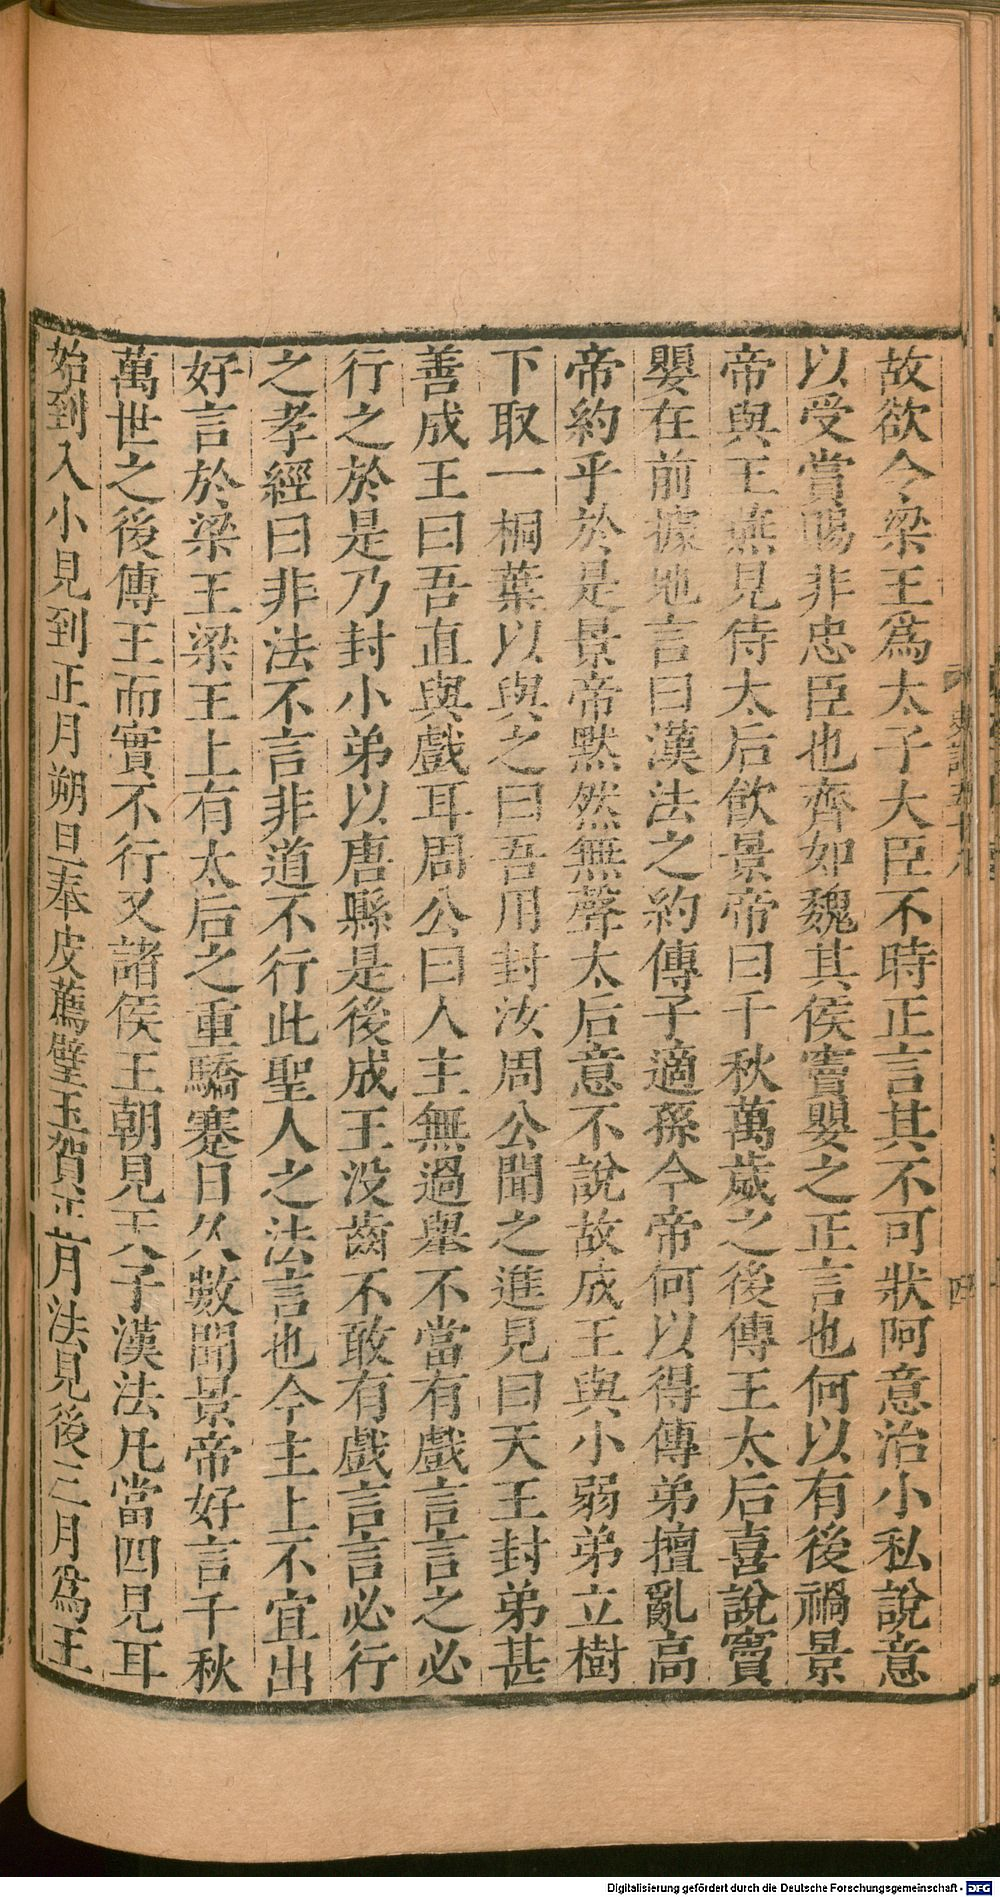 故欲令梁王爲太子大臣不時正言其不可狀阿意治小私說意
以受賞賜非忠臣也齊如魏其侯竇嬰之正言也何以有後禍景
帝與王燕見侍太后飮景帝曰千秋萬歲之後傳王太后喜說竇
嬰在前據地言曰漢法之約傳子適孫今帝何以得傳弟擅亂高
帝約乎於是景帝默然無聲太后意不說故成王與小弱弟立樹
下取一桐葉以與之曰吾用封汝周公聞之進見曰天王封弟甚
善成王曰吾直與戲耳周公曰人主無過舉不當有戲言言之必
行之於是乃封小弟以唐縣是後成王没齒不敢有戲言言必行
之孝經曰非法不言非道不行此聖人之法言也今主上不宜出
好言於梁王梁王上有太后之重驕蹇日久數聞景帝好言千秋
萬世之後傳王而實不行又諸侯王朝見天子漢法凡當四見耳
始到入小見到正月朔旦奉皮薦璧玉賀正月法見後三月爲王
史記五十八
四
Digitalisierung gefördert durch die Deutsche Forschungsgemeinschaft - DFG